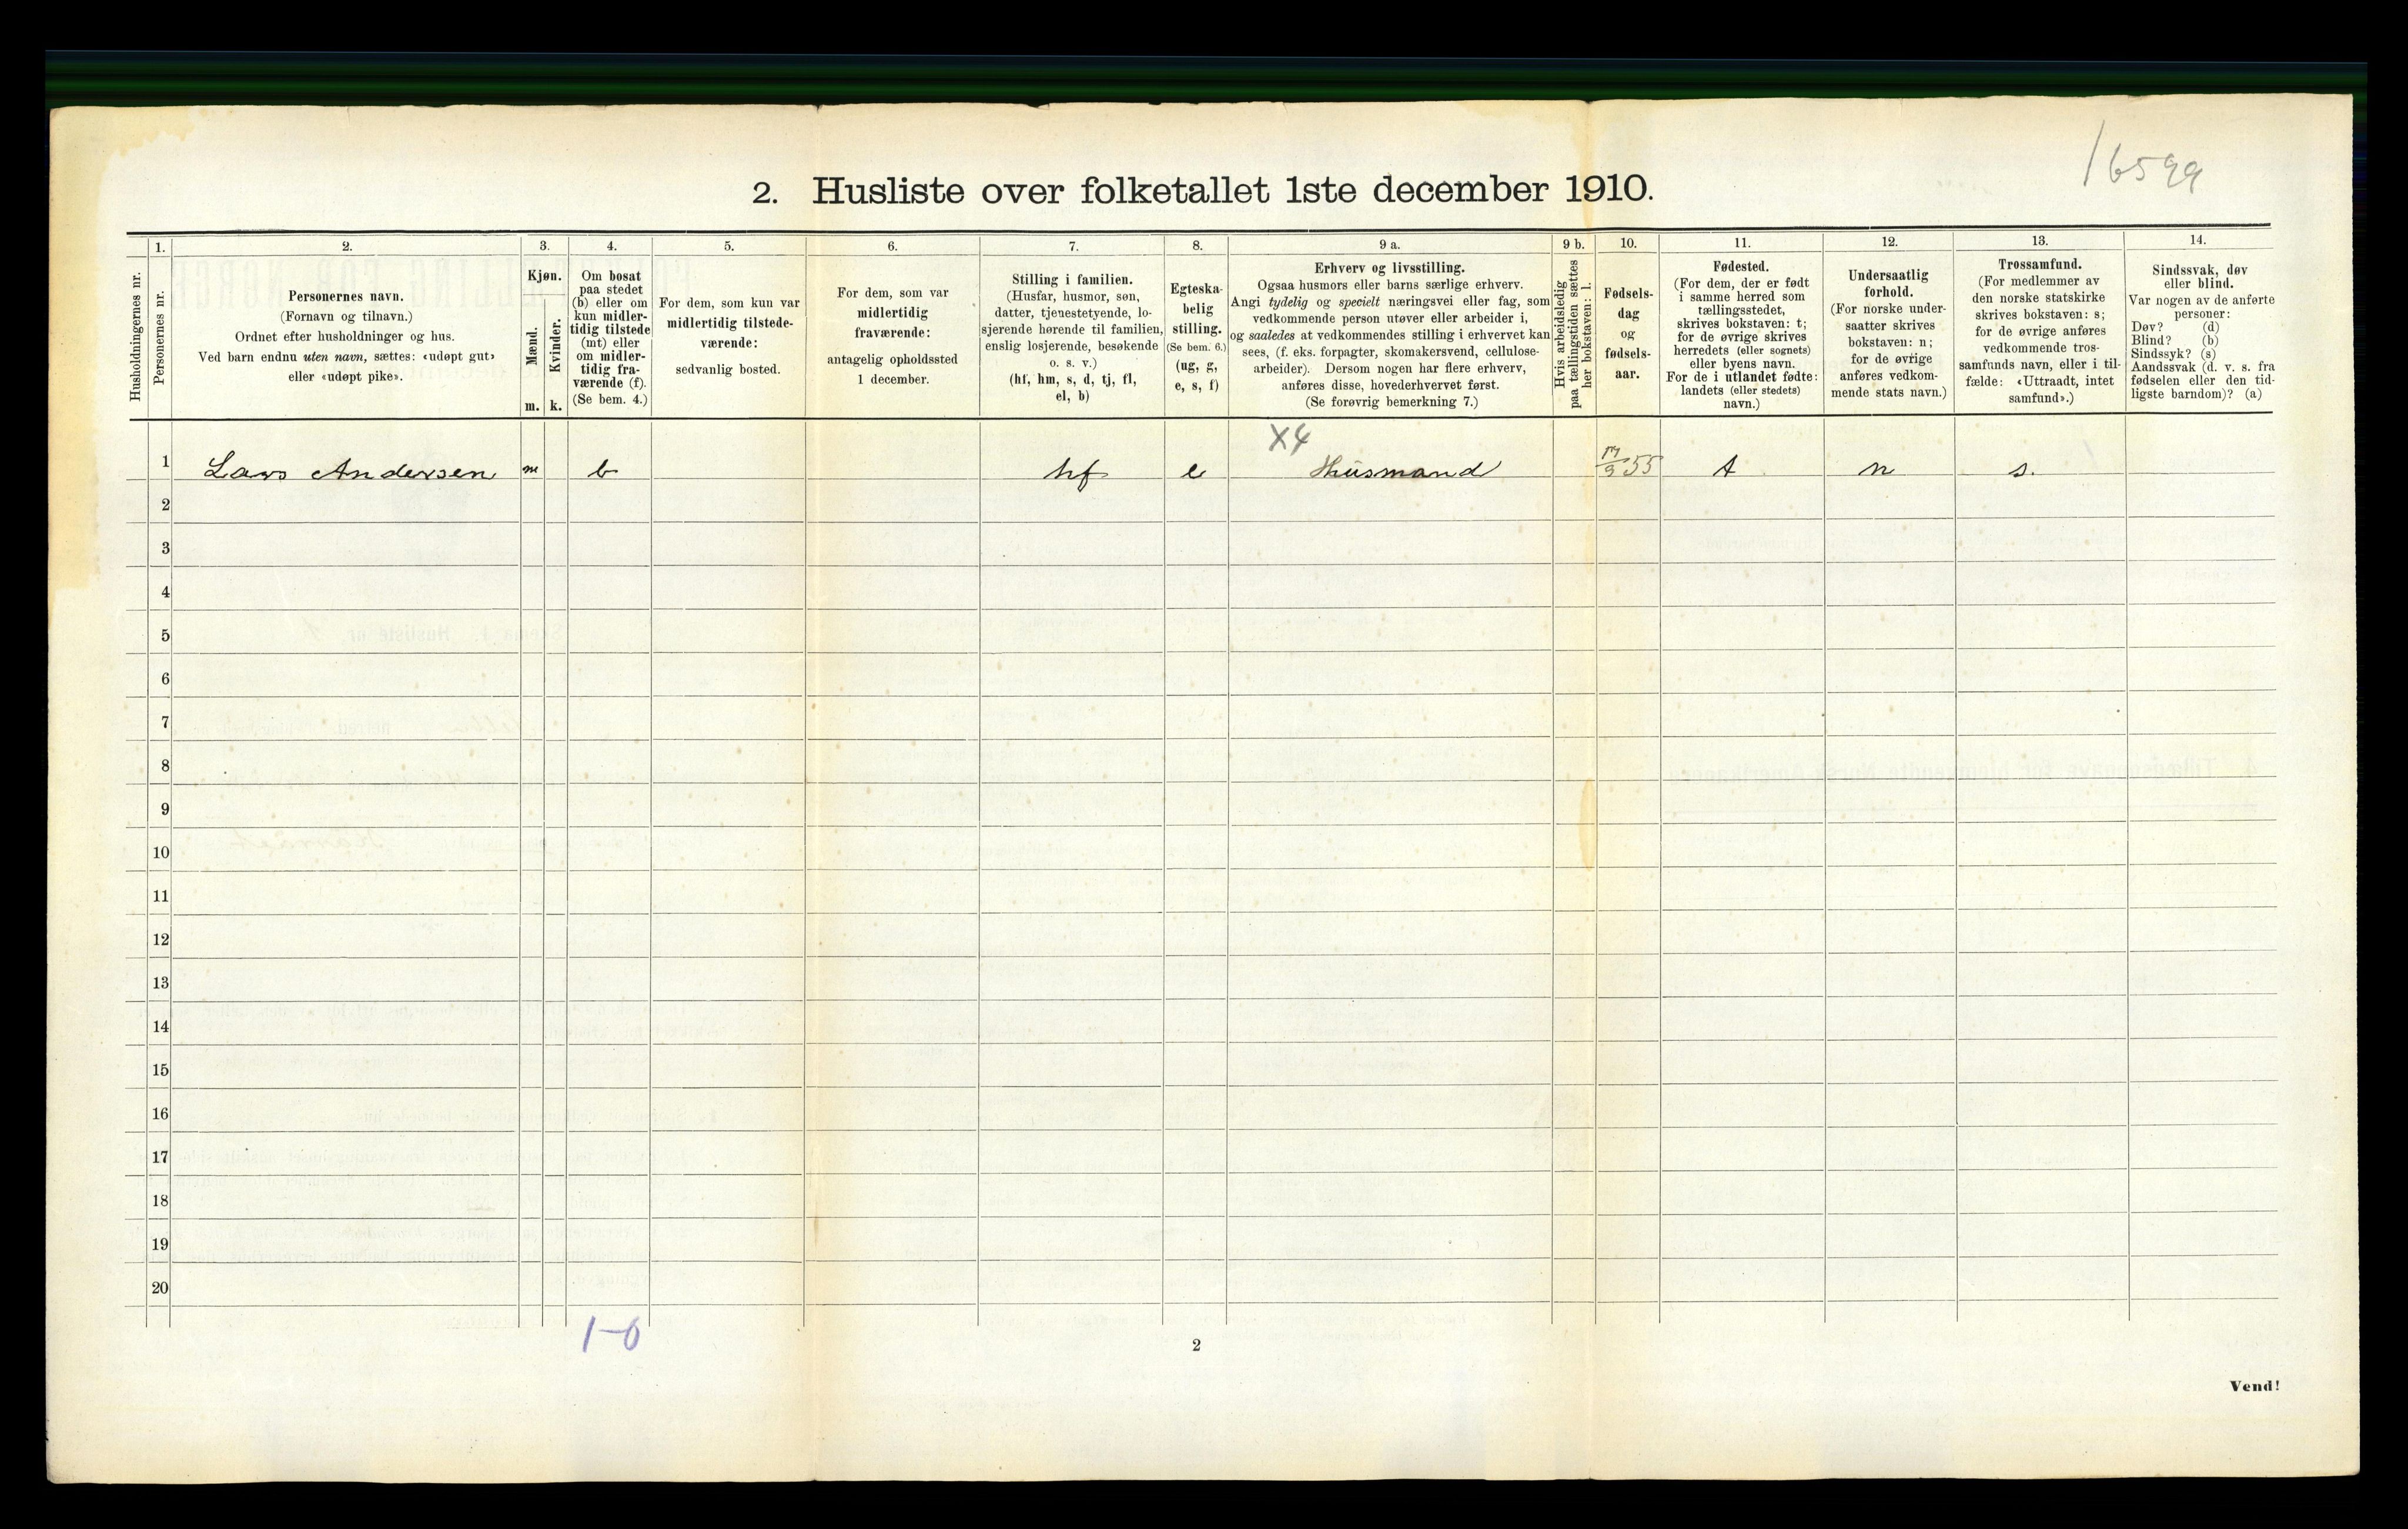 16599
2. Husliste over folketallet 1ste december 1910.
Husholdningernes nr.
1.
Personernes nr.
2.
Personernes navn.
(Fornavn og tilnavn.)
Ordnet efter husholdninger og hus.
Ved barn endnu uten navn, sættes: «udøpt gut»
eller «udøpt pike».
3.
Kjøn.
Mænd.
Kvinder.
m. k.
4.
Om bosat
paa stedet
(b) eller om
kun midler-
tidig tilstede
(mt) eller
om midler-
tidig fra-
værende (f).
(Se bem. 4.)
5.
For dem, som kun var
midlertidig tilstede-
værende:
sedvanlig bosted.
6.
For dem, som var
midlertidig
fraværende:
antagelig opholdssted
1 december.
7.
Stilling i familien.
(Husfar, husmor, søn,
datter, tjenestetyende, lo-
sjerende hørende til familien,
enslig losjerende, besøkende
o. s. v.)
(hf, hm, s, d, tj, fl,
el, b)
8.
Egteska-
belig
stilling.
(Se bem. 6.)
(ug, g,
e, s, f)
9 a.
Erhverv og livsstilling.
Ogsaa husmors eller barns særlige erhverv.
Angi tydelig og specielt næringsvei eller fag, som
vedkommende person utøver eller arbeider i,
og saaledes at vedkommendes stilling i erhvervet kan
sees, (f. eks. forpagter, skomakersvend, cellulose-
arbeider). Dersom nogen har flere erhverv,
anføres disse, hovederhvervet først.
(Se forøvrig bemerkning 7.)
9 b.
Hvis arbeidsledig
paa tællingstiden sættes
her bokstaven: l.
10.
Fødsels-
dag
og
fødsels-
aar.
11.
Fødested.
(For dem, der er født
i samme herred som
tællingsstedet,
skrives bokstaven: t;
for de øvrige skrives
herredets (eller sognets)
eller byens navn.
For de i utlandet fødte:
landets (eller stedets)
navn.)
12.
Undersaatlig
forhold.
(For norske under-
saatter skrives
bokstaven: n;
for de øvrige
anføres vedkom-
mende stats navn.)
13.
Trossamfund.
(For medlemmer av
den norske statskirke
skrives bokstaven: s;
for de øvrige anføres
vedkommende tros-
samfunds navn, eller i til-
fælde: «Uttraadt, intet
samfund».)
14.
Sindssvak, døv
eller blind.
Var nogen av de anførte
personer:
Døv? (d)
Blind? (b)
Sindssyk? (s)
Aandssvak (d. v. s. fra
fødselen eller den tid-
ligste barndom)? (a)
X4
1 Lars Andersen m b hf e Husmand 17/9 55 t n s.
2
3
4
5
6
7
8
9
10
11
12
13
14
15
16
17
18
19
20
1-0
2
Vend!